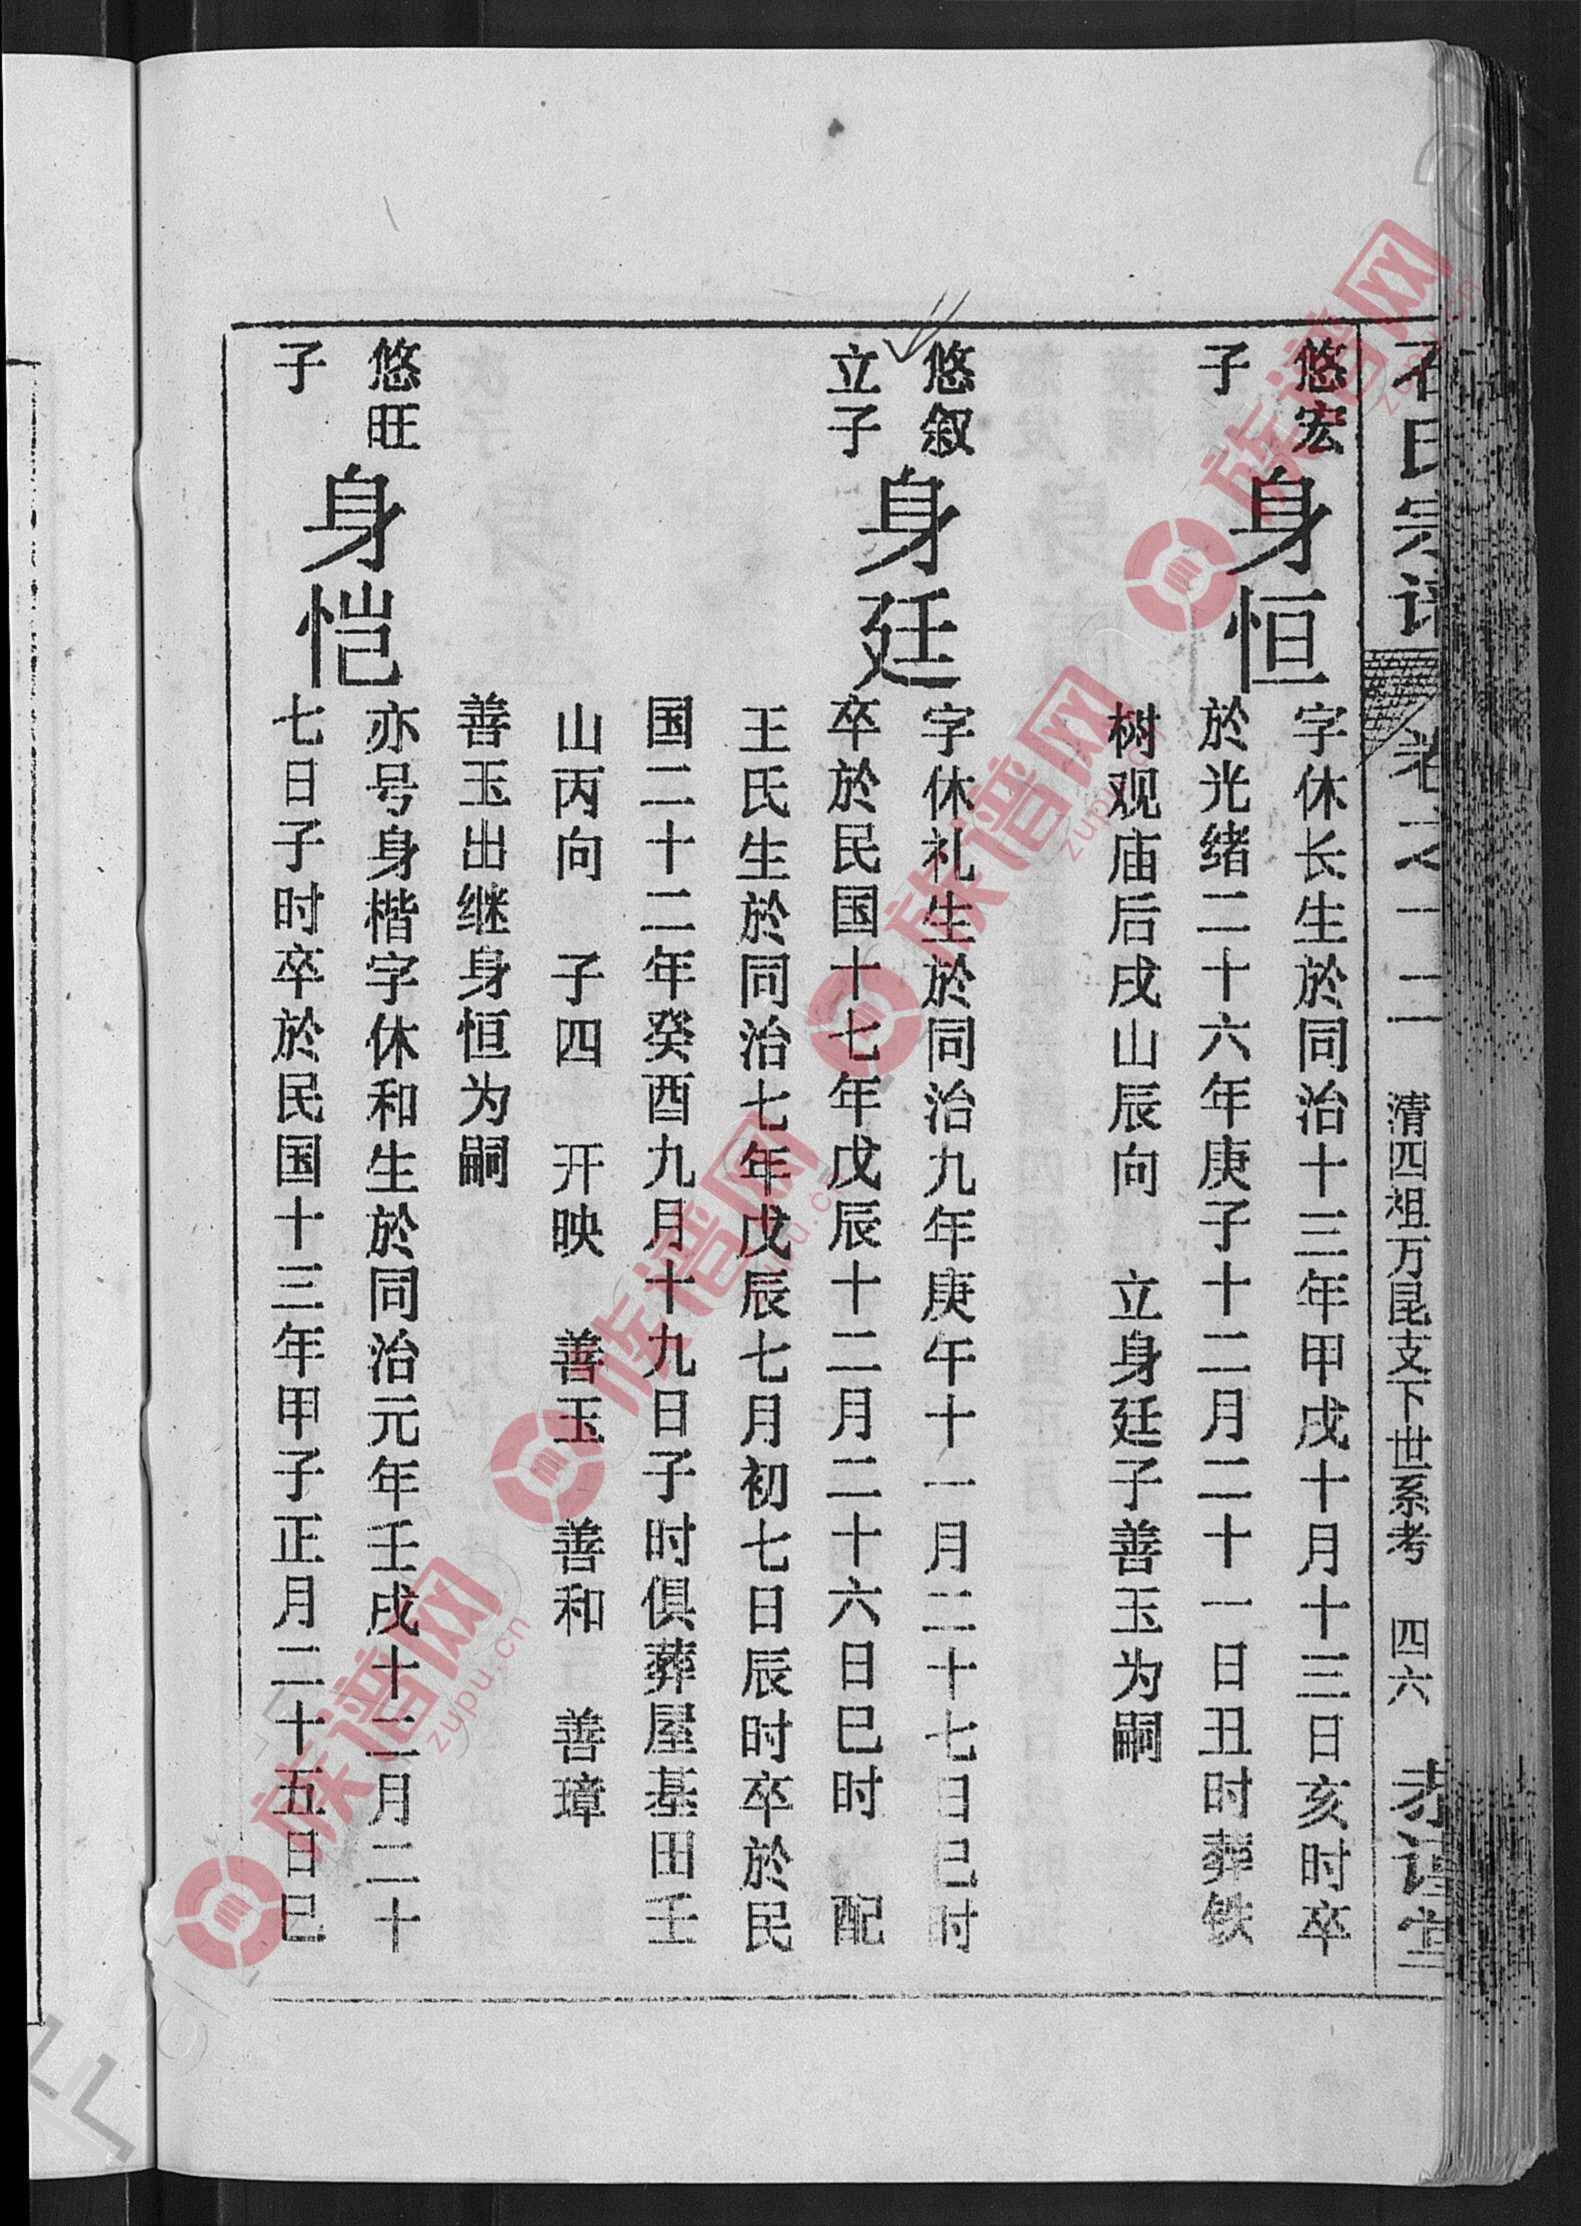 石氏宗谱 卷之十二 清四祖万昆支下世系考 四六 孝谨堂
悠宏
子
身恒
字休长生於同治十三年甲戌十月十三日亥时卒
於光绪二十六年庚子十二月二十一日丑时葬铁
树观庙后戌山辰向 立身廷子善玉为嗣
悠叙
立子
身廷
字休礼生於同治九年庚午十一月二十七日巳时
卒於民国十七年戊辰十二月二十六日巳时 配
王氏生於同治七年戊辰七月初七日辰时卒於民
国二十二年癸酉九月十九日子时俱葬屋基田壬
山丙向 子四 开映 善玉 善和 善璋
善玉出继身恒为嗣
悠旺
子
身恺
亦号身楷字休和生於同治元年壬戌十二月二十
七日子时卒於民国十三年甲子正月二十五日巳
族谱网
zupu.cn
族谱网
zupu.cn
族谱网
zupu.cn
族谱网
zupu.cn